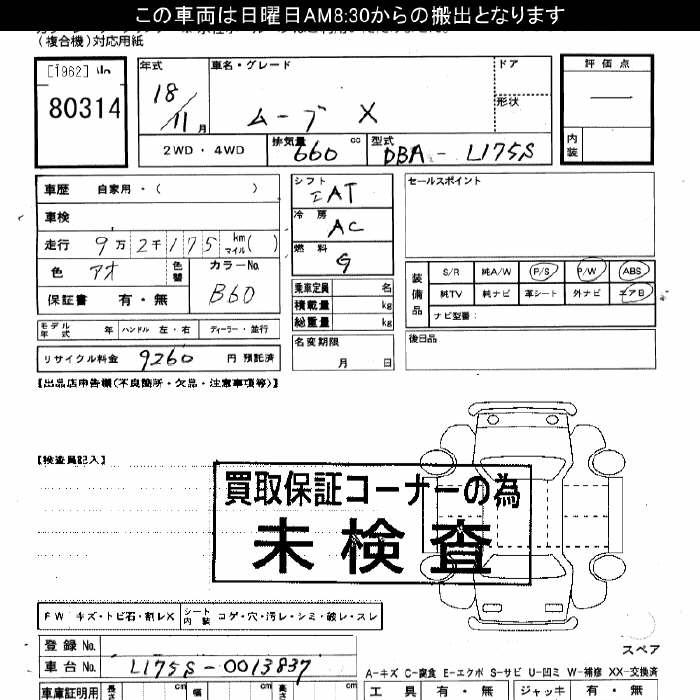 この車両は日曜日AM8:30からの搬出となります
(複合機)対応用紙
[1962]
80314
年式
18/11月
車名・グレード
ムーブ X
ドア
形状
評価点
内装
2WD・4WD
排気量 660 cc
型式 DBA-L175S
車歴 自家用・( )
車検
走行 9万2千175 km マイル( )
色 アオ
色替
カラーNo. B60
保証書 有・無
シフト
AT
冷房 AC
燃料 G
乗車定員 名
積載量 kg
総重量 kg
セールスポイント
装備品
S/R 純A/W P/S P/W ABS
純TV 純ナビ 革シート 外ナビ エアB
ナビ型番:
モデル年式 年 ハンドル 左・右 ディーラー・並行
リサイクル料金 9260 円 預託済
名変期限
月 日
後日品
【出品店申告欄(不良箇所・欠品・注意事項等)】
【検査員記入】
買取保証コーナーの為
未検査
FW キズ・トビ石・割レX シート内装 コゲ・穴・汚レ・シミ・破レ・スレ
スペア
登録No.
車台No. L175S-0013837
A-キズ C-腐食 E-エクボ S-サビ U-凹ミ W-補修 XX-交換済
車庫証明用 長さ cm 幅 cm 高さ cm
工具 有・無 ジャッキ 有・無